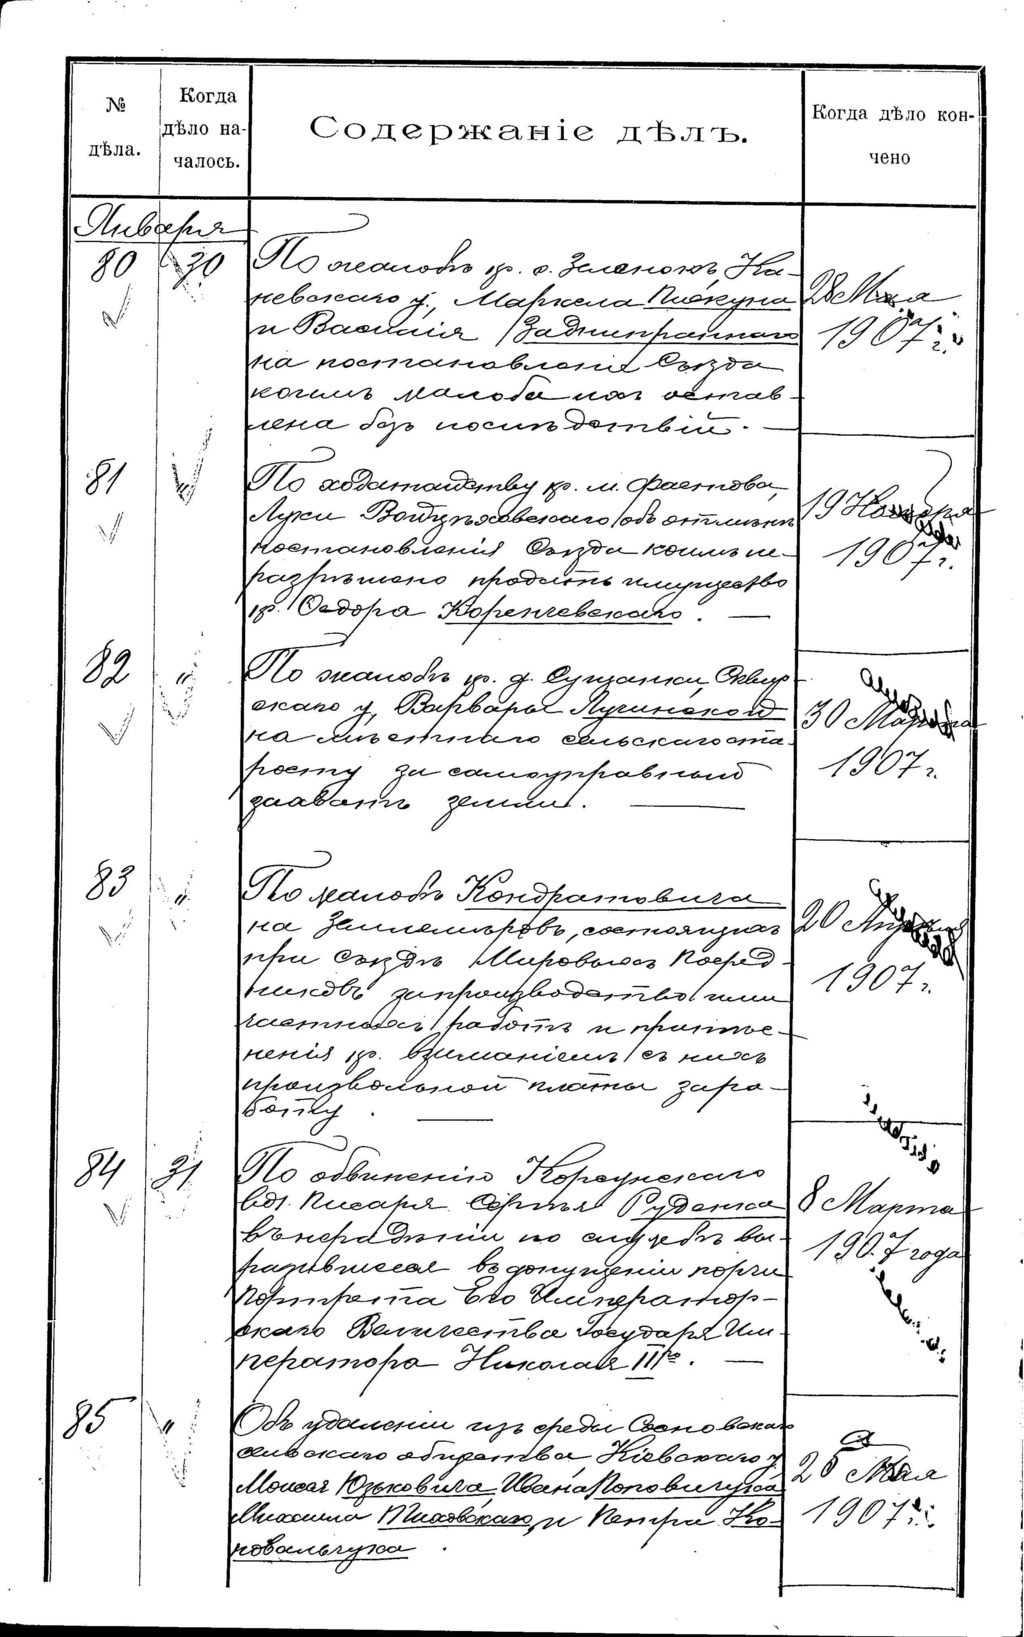 № дѣла.
Когда дѣло на-
чалось.
Содержаніе дѣлъ.
Когда дѣло кон-
чено
Января
80 30 По жалобѣ кр. с. Зеленокъ, Ка-
невскаго у., Маркела Пискуна
и Василія Заднипраннаго
на постановленіе Съѣзда
коимъ жалоба ихъ остав-
лена безъ послѣдствій. —
28 Мая
1907 г.
81 " По ходатайству кр. м. Фастова,
Луки Войцѣховскаго объ отмѣнѣ
постановленія Съѣзда коимъ не
разрѣшено продать имущество
кр. Ѳедора Коренчевскаго. —
19 Ноября
1907 г.
82 " По жалобѣ кр. д. Сущанки, Сквир-
скаго у, Варвары Лучинской
на мѣстнаго сельскаго ста-
росту за самоуправный
захватъ земли. —
30 Марта
1907 г.
83 " По жалобѣ Кондратовича
на Землемѣровъ, состоящихъ
при Съѣздѣ Мировыхъ Посред-
никовъ за производство ими
частныхъ работъ и притѣс-
ненія кр. взиманіемъ съ нихъ
произвольной платы за ра-
боту. —
20 Апрѣля
1907 г.
84 31 По обвиненію Корсунскаго
вол. Писаря Сергѣя Руденка
въ нерадѣніи по службѣ вы-
разившееся въ допущеніи порчи
Портрета Его Император-
скаго Величества Государя Им-
ператора Николая IIго. —
8 Марта
1907 года
85 " Объ удаленіи изъ среды Сосновскаго
сельскаго общества, Кіевскаго у.
Моисея Юзьковича, Ивана Поповичука
Михаила Тиховскаго, и Петра Ко-
новальчука.
26 Мая
1907 г.